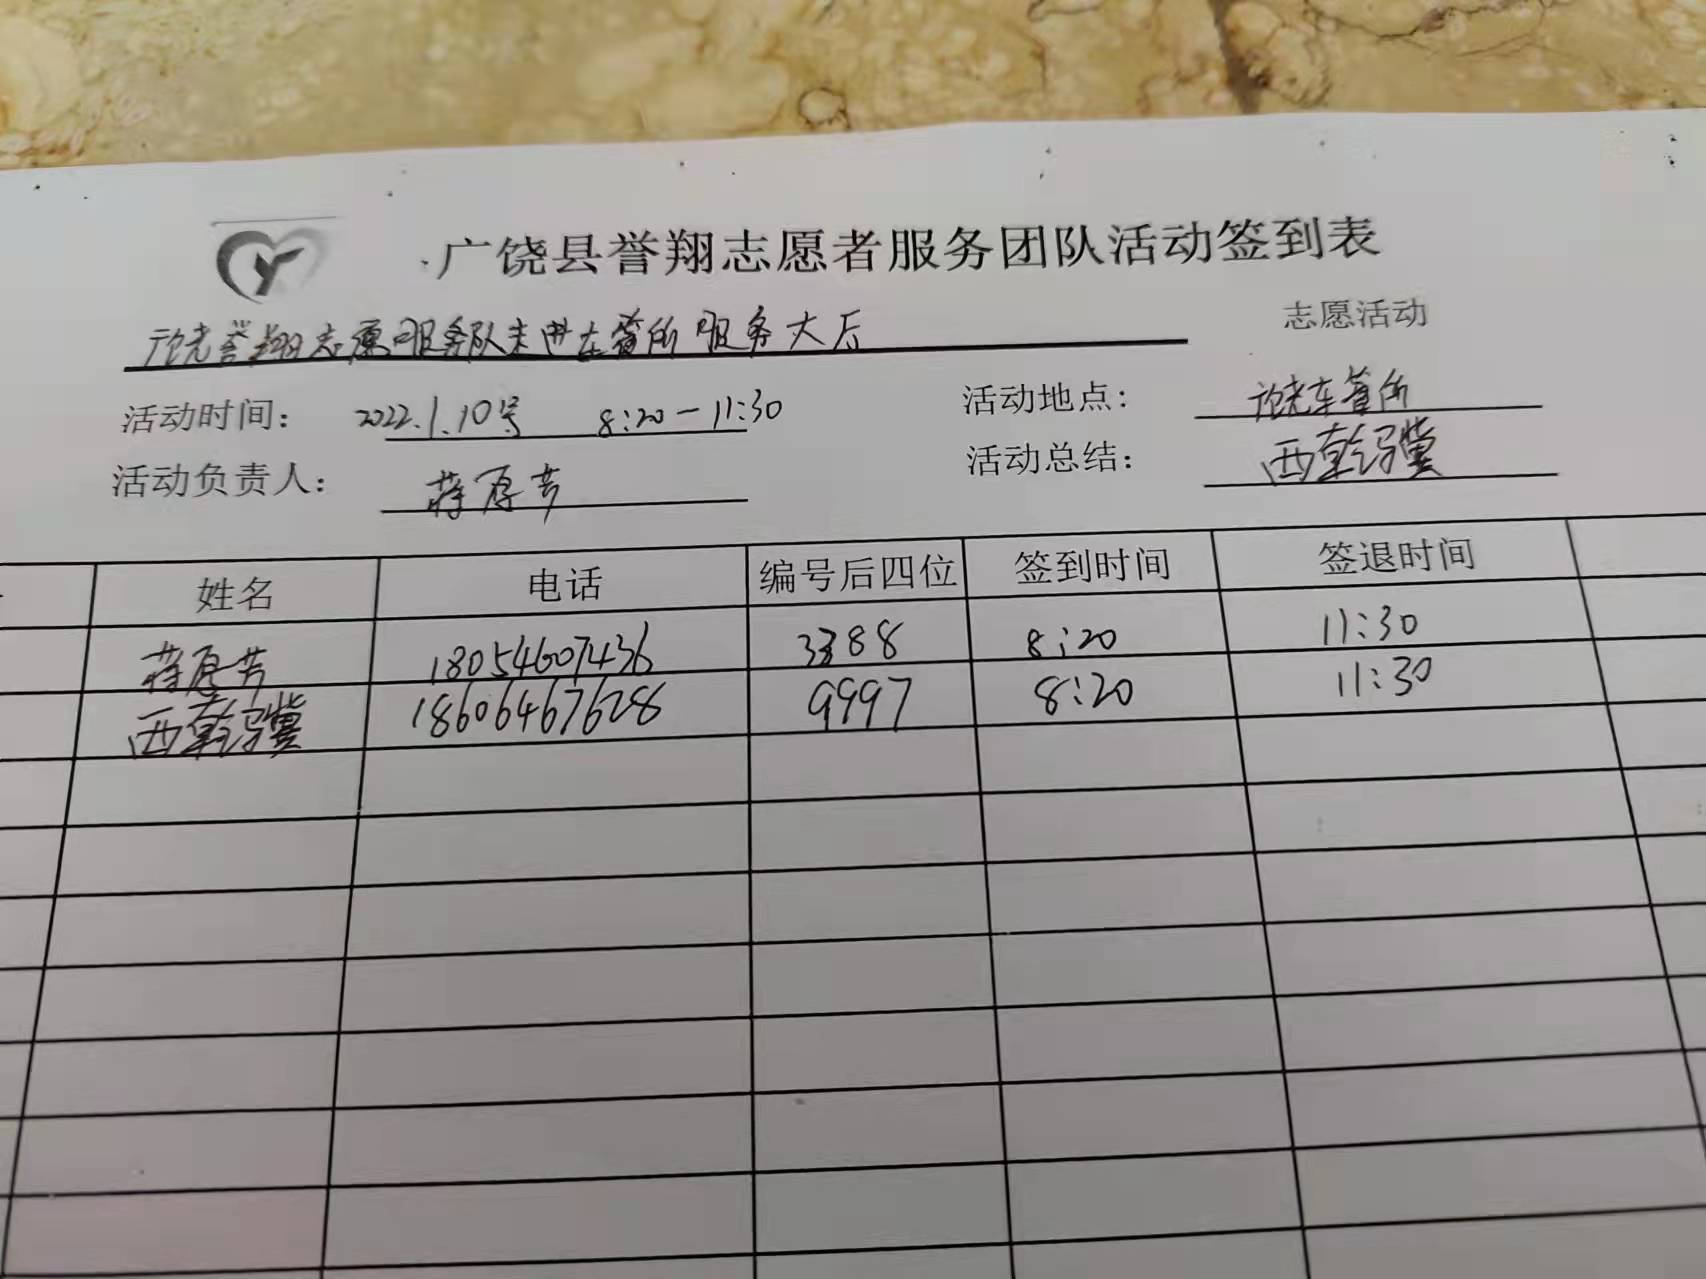 广饶县誉翔志愿者服务团队活动签到表
广饶誉翔志愿服务队走进车管所服务大厅
志愿活动
活动时间： 2022.1.10号 8:20—11:30 活动地点： 广饶车管所
活动负责人： 蒋厚芳 活动总结： 西乾冀
姓名 电话 编号后四位 签到时间 签退时间
蒋厚芳 18054607436 3388 8:20 11:30
西乾冀 18606467628 9997 8:20 11:30